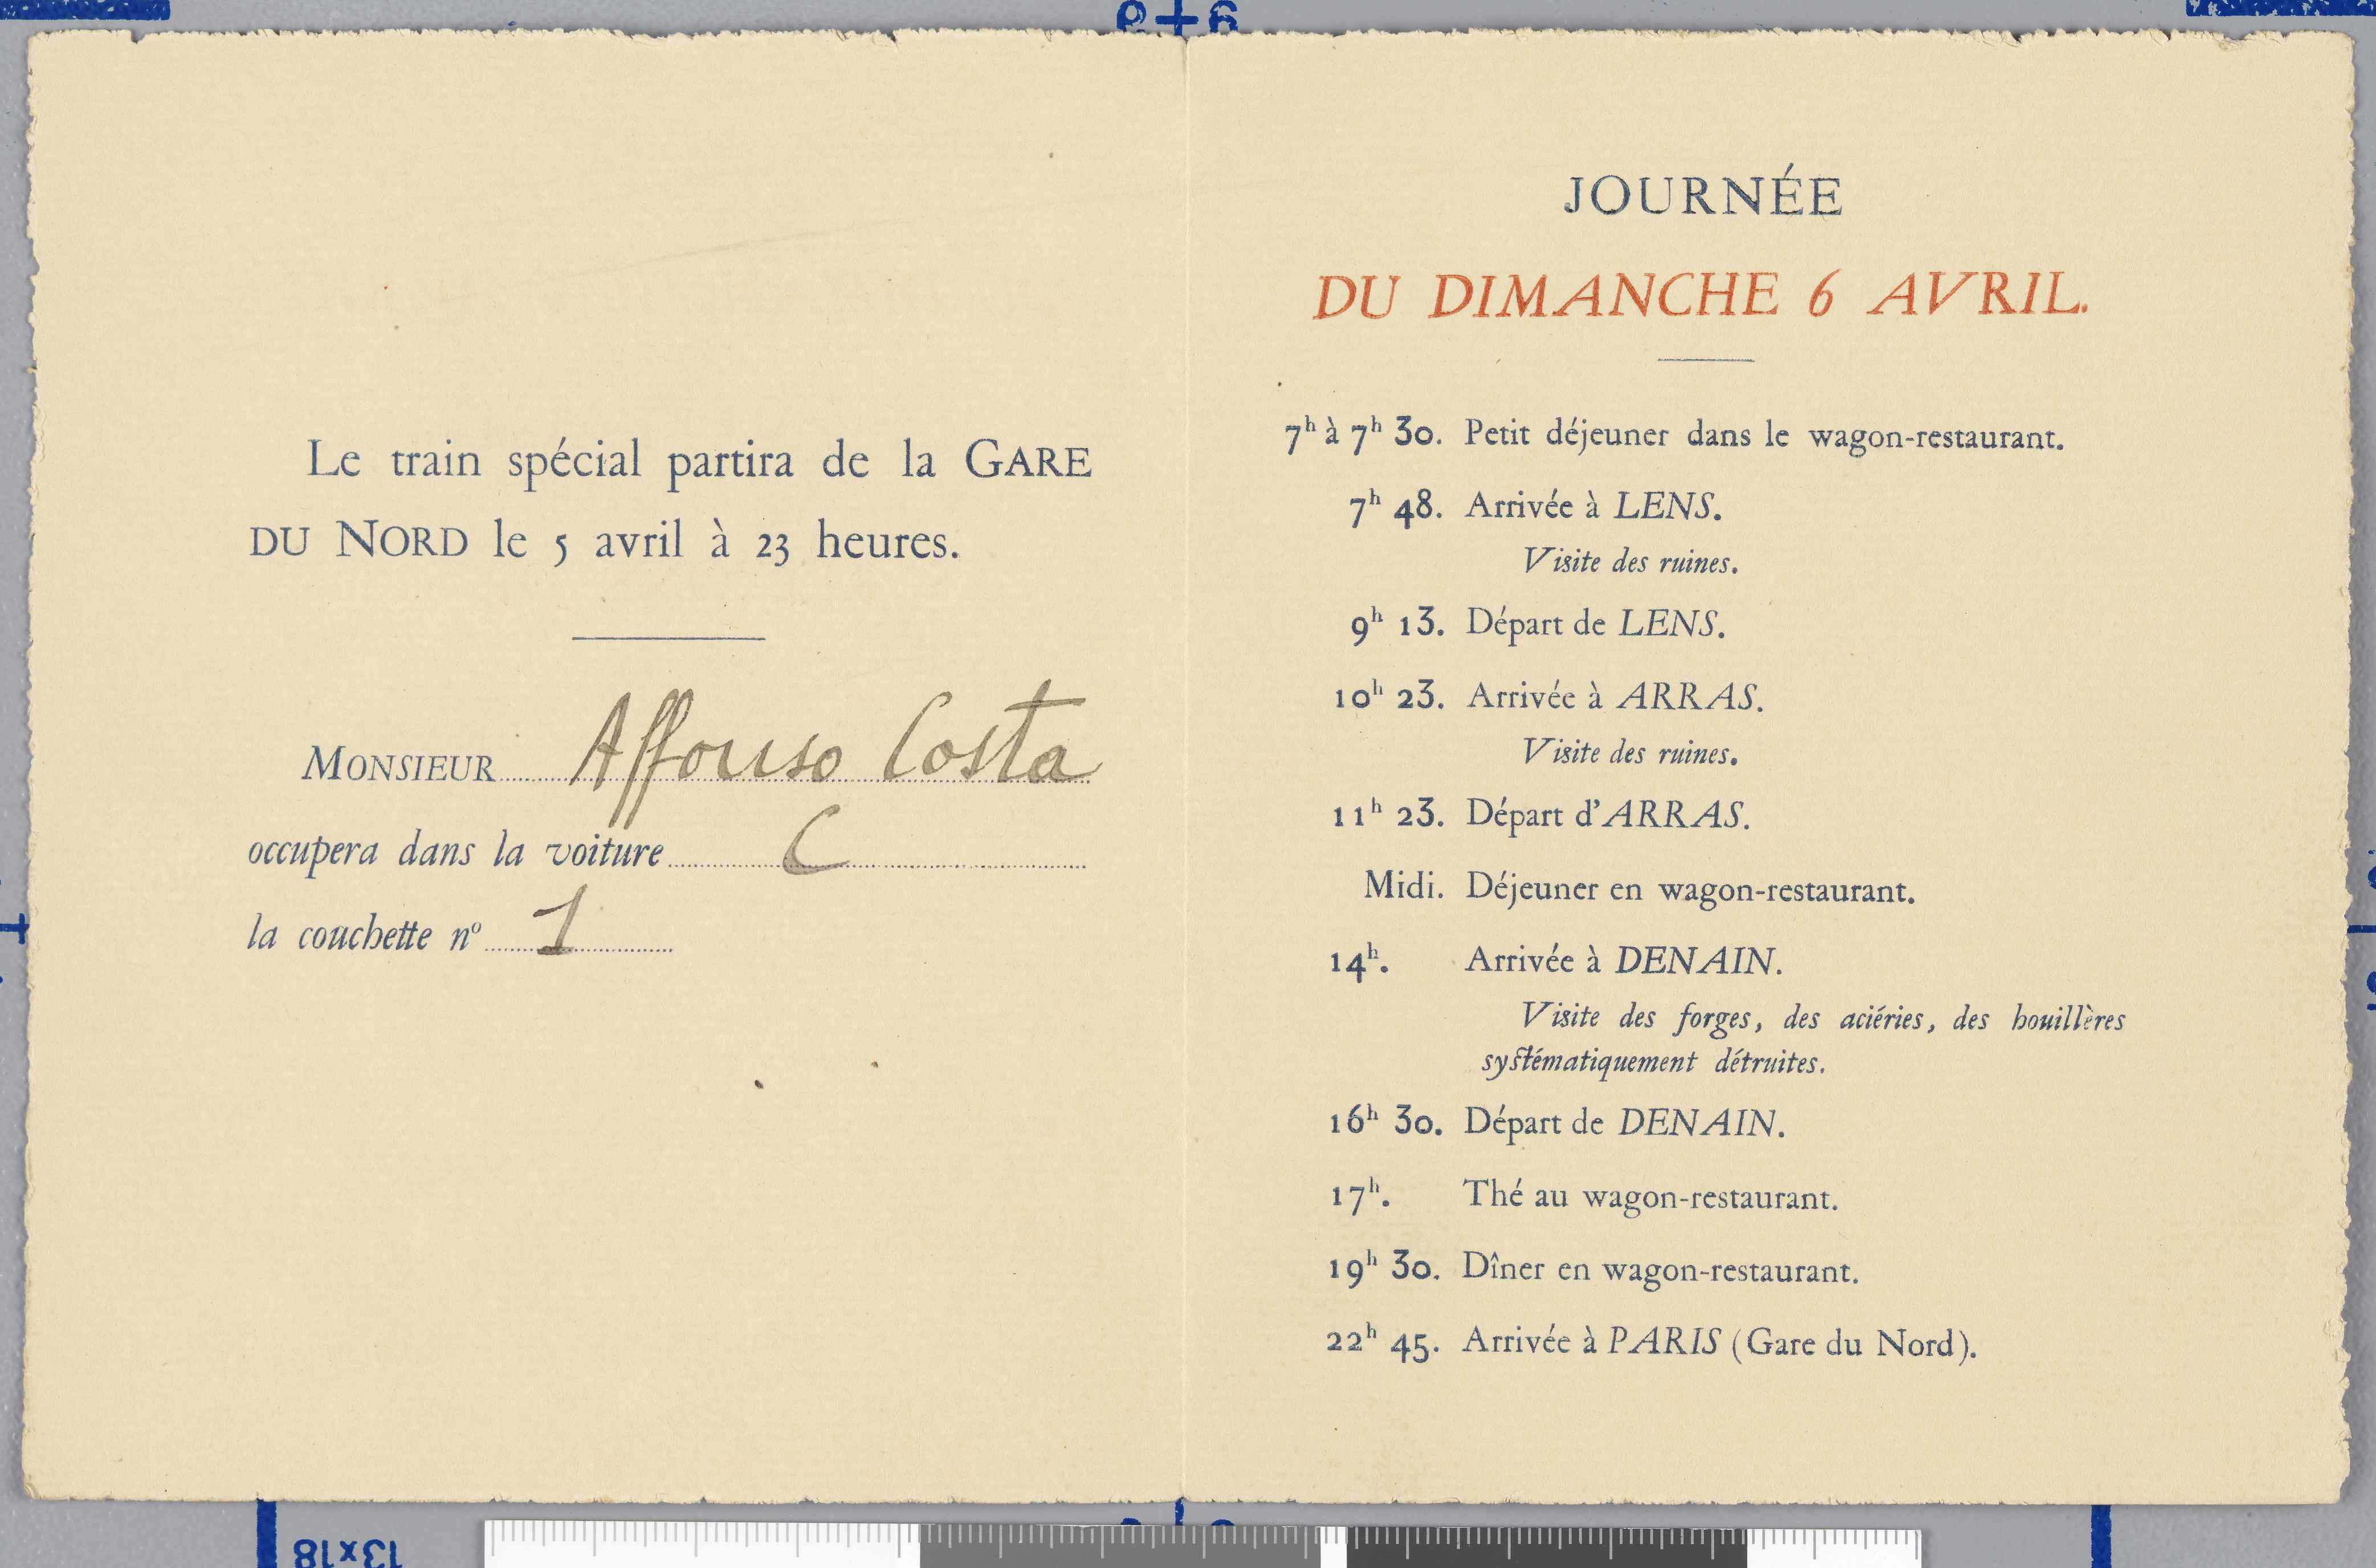 Le train spécial partira de la GARE
DU NORD le 5 avril à 23 heures.
MONSIEUR Affonso Costa
occupera dans la voiture C
la couchette nº 1
JOURNÉE
DU DIMANCHE 6 AVRIL.
7h à 7h 30. Petit déjeuner dans le wagon-restaurant.
7h 48. Arrivée à LENS.
Visite des ruines.
9h 13. Départ de LENS.
10h 23. Arrivée à ARRAS.
Visite des ruines.
11h 23. Départ d'ARRAS.
Midi. Déjeuner en wagon-restaurant.
14h. Arrivée à DENAIN.
Visite des forges, des aciéries, des houillères
systématiquement détruites.
16h 30. Départ de DENAIN.
17h. Thé au wagon-restaurant.
19h 30. Dîner en wagon-restaurant.
22h 45. Arrivée à PARIS (Gare du Nord).
13x18